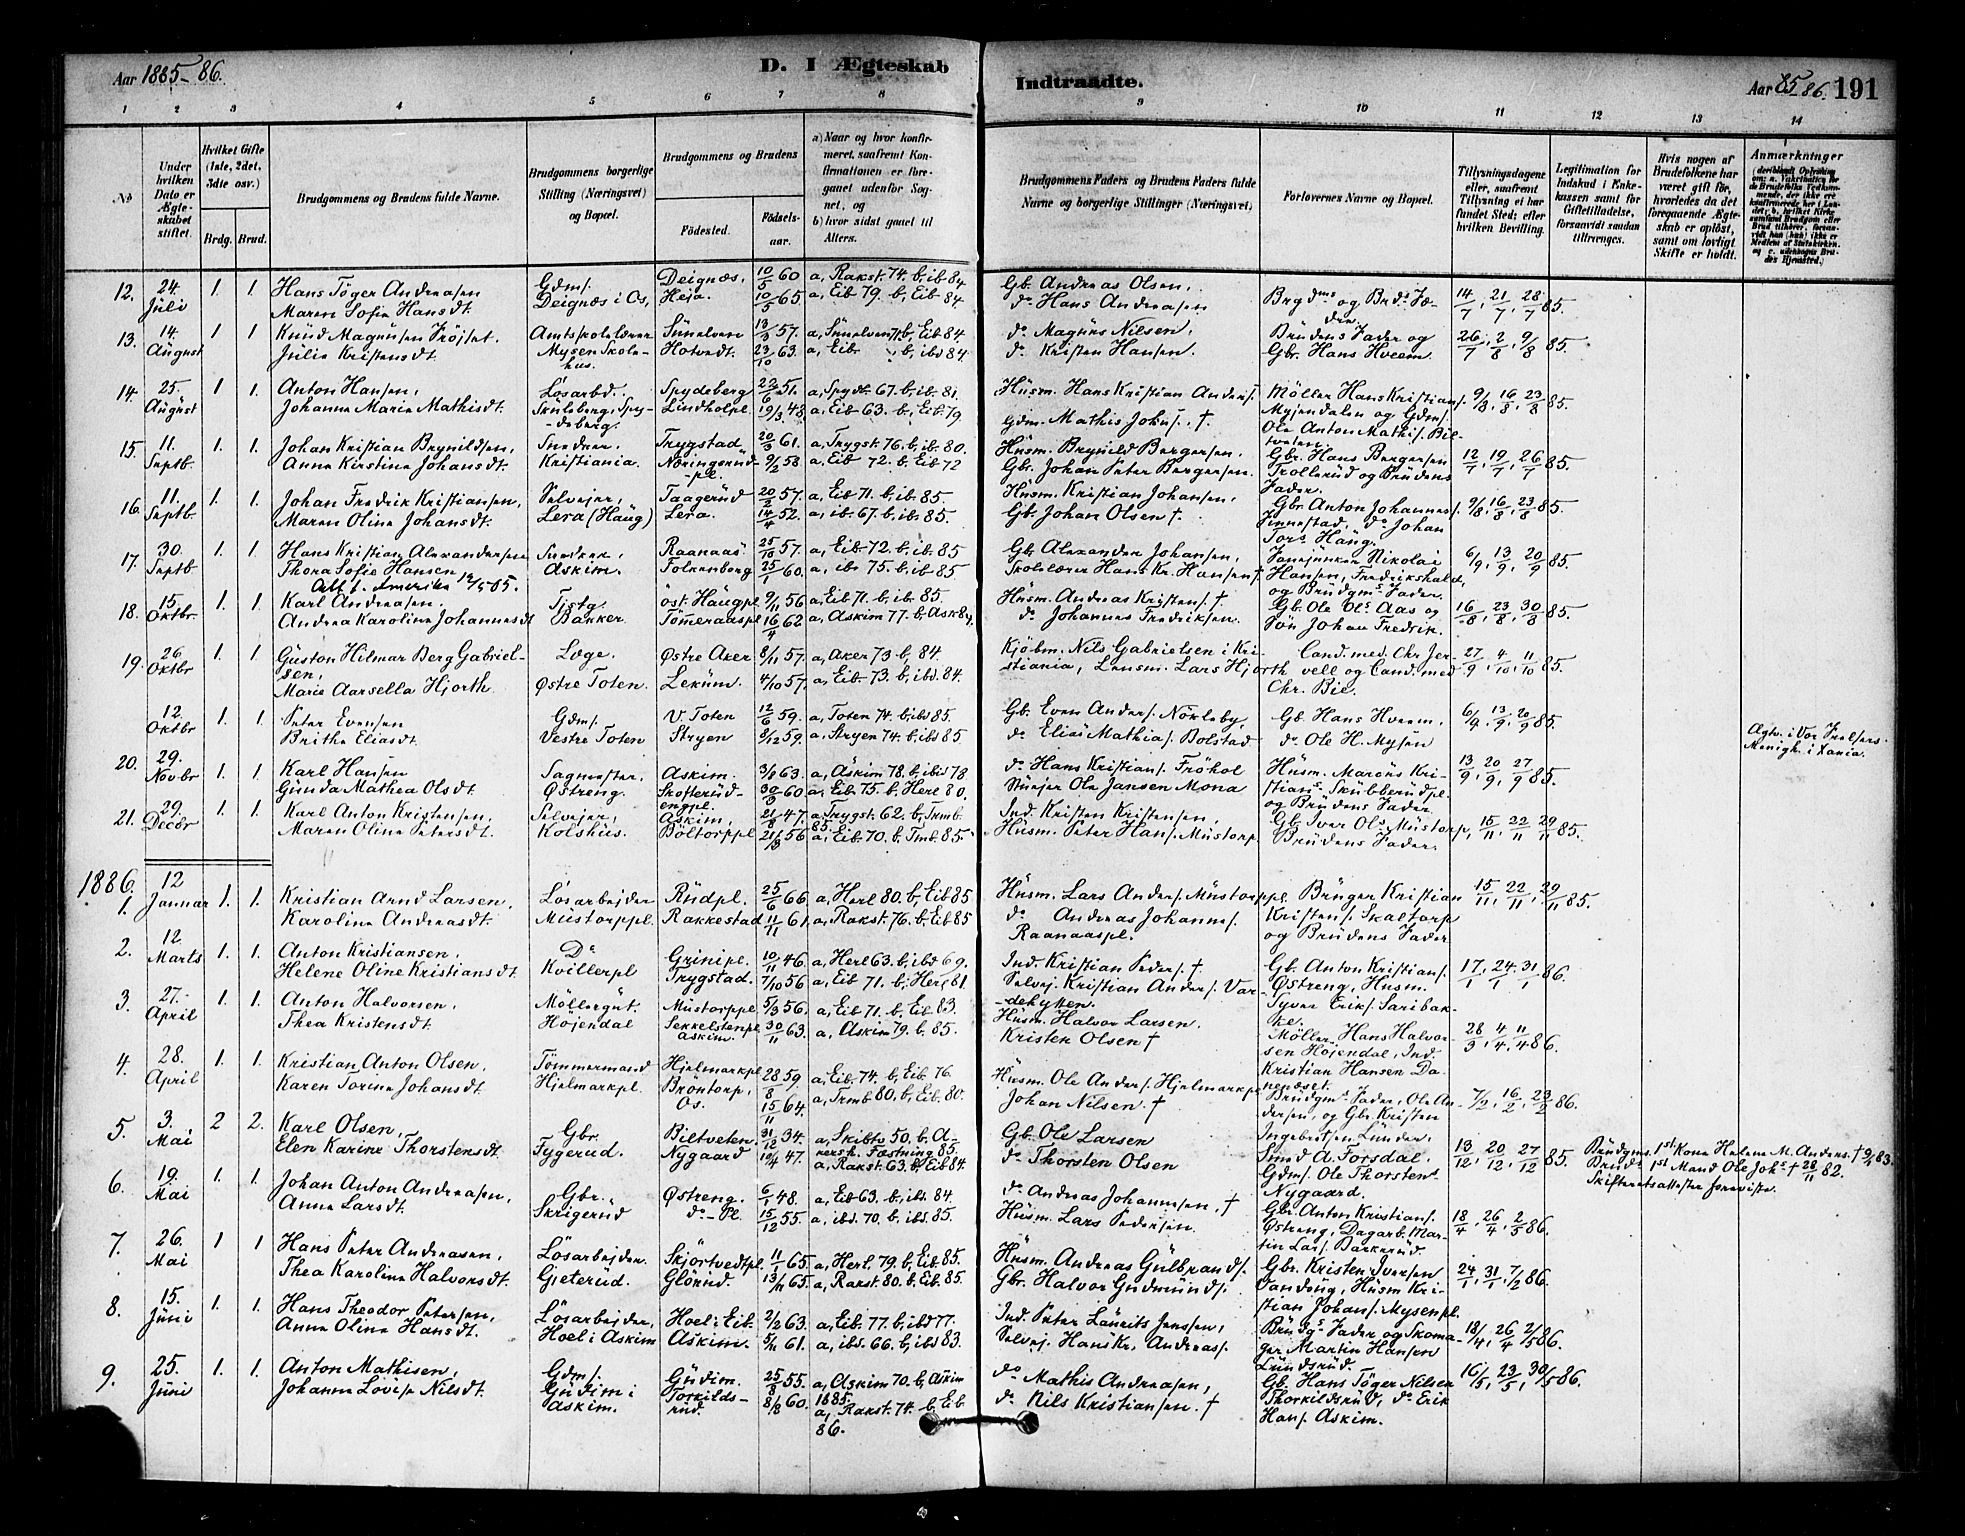 Aar 1885-86.
D. I Ægteskab
Indtraadte.
Aar 85-86. 191
1 2 3 4 5 6 7 8 9 10 11 12 13 14
No
Under hvilken Dato er Ægteskabet stiftet.
Hvilket Gifte (1ste, 2det, 3die osv.)
Brdg. Brud.
Brudgommens og Brudens fulde Navne.
Brudgommens borgerlige Stilling (Næringsvei) og Bopæl.
Brudgommens og Brudens
Fødested.
Fødselsaar.
a) Naar og hvor konfirmeret, saafremt Konfirmationen er foregaaet udenfor Sognet, og
b) hvor sidst gaaet til Alters.
Brudgommens Faders og Brudens Faders fulde Navne og borgerlige Stillinger (Næringsvei)
Forlovernes Navne og Bopæl.
Tillysningsdagene eller, saafremt Tillysning ei har fundet Sted; efter hvilken Bevilling.
Legitimation for Indskud i Enkekassen samt for Giftetilladelse, forsaavidt saadan tiltrænges.
Hvis nogen af Brudefolkene har været gift før, hvorledes da det foregaaende Ægteskab er opløst, samt om lovligt Skifte er holdt.
Anmærkninger
12. 24. Juli 1. 1. Hans Töger Andreasen Gdms. Deignæs, 10/5 60 a, Rakst. 74. b, ib 84 Gb. Andreas Olsen, Brgdms og Brds Fædre. 14/7, 21/7, 28/7 85.
Maren Sofie Hansdt. Deignæs i Os, Heia. 10/5 65 a, Eib 79. b, Eib 84. do Hans Andreasen
13. 14. August 1 1 Knud Magnusen Fröjset. Amtsskolelærer Sünelven 13/3 57. a, Sünelven 71. b, Eib 84. do Magnus Nilsen. Brudens Fader og 26/7, 2/8, 9/8 85.
Julie Kristensdt. Mysen Skolehus. Hotvedt. 23/10 63. a, Eibr b, ibd 84. do Kristen Hansen. Gbr. Hans Hveem.
14. 25. August 1 1. Anton Hansen, Løsarbd. Spydeberg 22/6 51. a, Spydt. 67. b, ib. 81. Hüsm. Hans Kristian Anders. Möller Hans Kristians. 9/8, 16/8, 23/8 85.
Johanne Marie Mathisdt. Skulsberg, Spydeberg. Lindholpl. 19/3 43. a, Eib 63. b, Eib 79 Gdm. Mathis Johns. † Mysendalen og Gdms. Ole Anton Mathis. Biltveten.
15. 11. Septb. 1. 1. Johan Kristian Brynildsen, Snedker Trygstad 20/3 61. a, Trygst. 76. b, ib. 80. Hüsm. Brynild Bergersen. Gbr. Hans Bergersen 12/7, 19/7, 26/7 85.
Anne Kirstine Johansdt. Kristiania. Næringsrüdpl. 9/2 58 a, Eib 72. b, Eib 72 Gb. Johan Peter Bergersen. Trollerud og Brudens Fader.
16. 11. Septb. 1. 1. Johan Fredrik Kristiansen, Selvejer, Taagerüd 20/2 57. a, Eib 71. b, ib. 85. Hüsm. Kristian Johansen. Gbr Anton Johannes. 9/8, 16/8, 23/8 85.
Maren Oline Johansdt. Lera (Haug) Lera. 14/4 52. a, ib. 67. b, ib 85. Gb. Johan Olsen †. Finnestad, do Johan Tors. Haug.
17. 30. Septb 1. 1. Hans Kristian Alexandersen Snedker, Raanaas 25/10 57. a, Eib 72. b, ib 85 Gb. Alexander Johansen, Fanejunker Nikolai 6/9, 13/9, 20/9 85.
Thora Sofie Hansen Askim. Folkenborg 25/1 60. a, ibd 75. b, ib 85 Skolelærer Hans Kr. Hansen † Hansen, Fredrikshald, og Brudgms. Fader.
Att. t. Amerika 12/5 05.
18. 15. Oktbr 1. 1. Karl Andreasen. Tjstg. öst. Haugpl. 9/11 56 a, Eib 71. b, ib. 85. Hüsm. Andreas Kristens. † Gb. Ole Ols. Aas og 16/8, 23/8, 30/8 85.
Andrea Karoline Johannesdt Banker. Tömeraaspl. 16/4 62 a, Askim 77. b, Ask 84. do Johannes Fredriksen. Søn Johan Fredrik.
19. 26. Oktbr 1. 1. Güston Hilmar Berg Gabrielsen, Læge. Østre Aker 8/11 57. a, Aker 73 b, 84. Kjöbm. Nils Gabrielsen i Kristiania, Cand. med. Chr Jervell og Cand. med. 27/9, 4/10, 11/10 85.
Marie Aarsella Hjorth Østre Toten. Lekum. 4/10 57. a, Eib. 73. b, ibd. 84. Lensm. Lars Hjorth Chr. Bie.
12. Oktbr 1. 1. Peter Evensen Gdms. V. Toten 12/6 59. a, Toten 74. b, ibd 85. Gb. Even Anders. Nökleby, Gb. Hans Hveem. 6/9, 13/9, 20/9 85. Agtv. i Vor Frelsers Menigh. i Xania.
Brithe Eliasdt Vestre Toten Stryen 8/12 59. a, Stryen 74. b, ibd 85. do Elias Mathias. Bolstad do Ole H. Mysen
20. 29. Novbr 1. 1. Karl Hansen Sagmester, Askim. 3/8 63. a, Askim 78. b, ibd 78 do Hans Kristians. Fröhol Hüsm. Marcüs Kristians. 13/9, 20/9, 27/9 85.
Günda Mathea Olsdt. Østreng. Skofterüdengpl. 30/3 60 a, Eib 75. b, Herl 80. Ole Jansen Mona Skubberudpl. og Brudens Fader
21. 29. Decbr 1. 1. Karl Anton Kristensen, Selvejer, Askim, 21/8 47. a, Trygst. 62. b, Trmb. 85. Ind. Kristen Kristensen, Gb. Iver Ols. Müstorp, 15/11, 22/11, 29/11 85.
Maren Oline Petersdt. Kolshus. Böltorppl. 21/3 56 a, Eib. 70. b, Tmb. 85. Hüsm. Peter Hans. Müstorp Brudens Fader.
1886.
1. 12 Januar 1. 1. Kristian Arnd Larsen, Løsarbejder Rüdpl. 25/6 66. a, Herl 80. b, Eib 85 Hüsm. Lars Anders. Müstorppl. Brüger Kristian 15/11, 22/11, 29/11 85.
Karoline Andreasdt Müstorppl. Rakkestad 11/11 61. a, Rakst. 76. b, Eib 85 do Andreas Johannes. Raanaaspl. Kristens. Skaltorp og Brudens Fader
2. 12. Marts 1. 1. Anton Kristiansen, Do Grinipl. 10/11 46. a, Herl 63. b, ibd 69. Ind. Kristian Peders. † Gb. Anton Kristians. 17/1, 24/1, 31/1 86.
Helene Oline Kristiansdt Kvillerpl Trygstad. 7/10 56 a, Eib 71. b, Herl 81. Selvej. Kristian Anders. Vardehytten. Østreng, Hüsm. Syver Eriks. Saribakke.
3. 27. April 1. 1. Anton Halvorsen. Möllergüt. Müstorppl 5/3 56. a, Eib 71. b, Eib 83. Hüsm. Halvor Larsen. Möller Hans Halvorsen 28/3, 4/4, 11/4 86.
Thea Kristensdt. Höjendal Sekkelstenpl askim. 30/11 63. a, Askim 79. b, 85. Kristen Olsen † Höjendal, Ind. Kristian Hansen Danenæset.
4. 28. April 1. 1. Kristian Anton Olsen, Tømmermand Hjelmarkpl 28/8 59 a, Eib. 74. b, Eib. 76. Hüsm. Ole Anders. Hjelmarkpl Brudgms Fader, Ole Andersen, 7/2, 16/2, 23/2 86.
Karen Torine Johansdt Hjelmarkpl. Bröntorp, Os. 15/11 64. a, Trmb 80. b, Eib. 80. Johan Nilsen. † og Gbr. Kristen Ingebretsen Lünder.
5. 3. Mai 2 2. Karl Olsen, Gbr. Biltveten. 31/12 34. a, Skibtv 50. b, Akersh. Fæstning 85. Gb. Ole Larsen Smed A. Forsdal. 13/12, 20/12, 27/12 85. Brudgms. 1st Kone Helene M. Anders. † 9/4 83.
Elen Karine Thorstensdt. Fygerud. Nygaard 10/4 47. a, Rakst. 63. b, Eib 84. do Thorsten Olsen Gdms. Ole Thorsten Nygaard. Brudens 1st Mand Ole Johs. † 28/11 82. Skifteretsattester foreviste.
6. 19. Mai 1. 1. Johan Anton Andreasen, Gbr. Østreng. 6/1 48. a, Eib 63. b, ibd. 84. do Andreas Johannesen, † Gbr. Anton Kristians. 18/4, 26/4, 2/5 86.
Anne Larsdt. Skrigerüd do-Pl. 15/12 55. a, ibd. 70. b, ibd. 85. Hüsm. Lars Pedersen. Østreng, Dagarb. Martin Lars. Bakkerüd.
7. 26. Mai 1 1 Hans Peter Andreasen, Løsarbejder Skjörtvedtpl. 11/1 65. a, Herl. 79. b, Eib 85. Hüsm. Andreas Gülbrands. Gbr. Kristen Iversen 24/1, 31/1, 7/2 86.
Thea Karoline Halvorsdt. Gjeterüd. Glörud 13/11 65. a, Rakst. 80. b, Eib 85. Gbr. Halvor Gudmünds. Sandeng, Hüsm Kristian Johans. Mysenpl.
8. 15. Juni 1. 1. Hans Theodor Petersen, Løsarbejder, Hoel i Eib. 2/2 63. a, Eib. 77. b, ibd 77. Ind. Peter Laurits Jenssen, Brudgs. Fader og Skomager 18/4, 26/4, 2/5 86.
Anne Oline Hansdt. Hoel i Askim Askim. 5/11 61. a, ibd. 66. b, ibd 83. Selvej. Hans Kr. Andreas. Martin Hansen Lündsrüd.
9. 25. Juni 1. 1. Anton Mathisen, Gdms. Güdim. 25/8 55. a, Askim 70. b, Askim 1885. do Mathis Andreasen, Gb. Hans Töger Nilsen 16/5, 23/5, 30/5 86.
Johanne Lovise Nilsdt. Gudim i Askim. Torkildsrüd. 8/8 60. a, Rakst. 74. b, Eib 86. do Nils Kristiansen. † Thorkildsrüd, do Erik Hans. Askim.